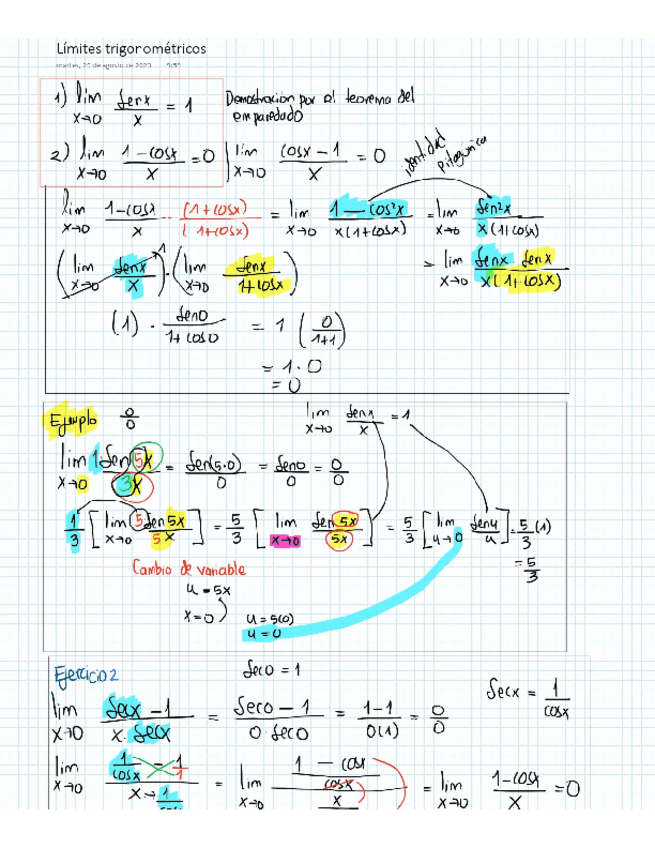 Límites trigonométricos
martes, 29 de agosto de 2023
1) lim x→0 senx/x = 1 Demostración por el teorema del
emparedado
2) lim x→0 1-cosx/x = 0 | lim x→0 cosx-1/x = 0
identidad pitagórica
lim x→0 1-cosx/x · (1+cosx)/(1+cosx) = lim x→0 1-cos²x/x(1+cosx) = lim x→0 sen²x/x(1+cosx)
(lim x→0 senx/x)¹ · (lim x→0 senx/1+cosx) = lim x→0 senx senx/x(1+cosx)
(1) · sen0/1+cos0 = 1 (0/1+1)
= 1·0
= 0
Ejemplo 0/0 lim x→0 senx/x = 1
lim x→0 1sen5x/3x = sen(5·0)/0 = sen0/0 = 0/0
1/3 [lim x→0 5sen5x/5x] = 5/3 [lim x→0 sen5x/5x] = 5/3 [lim u→0 senu/u] = 5/3 (1)
= 5/3
Cambio de variable
u = 5x
x=0 u=5(0)
u=0
Ejercicio 2 sec0 = 1 secx = 1/cosx
lim x→0 secx-1/x·secx = sec0-1/0·sec0 = 1-1/0(1) = 0/0
lim x→0 1/cosx - 1/1 / x · 1/cosx = lim x→0 1-cosx/cosx / x = lim x→0 1-cosx/x = 0